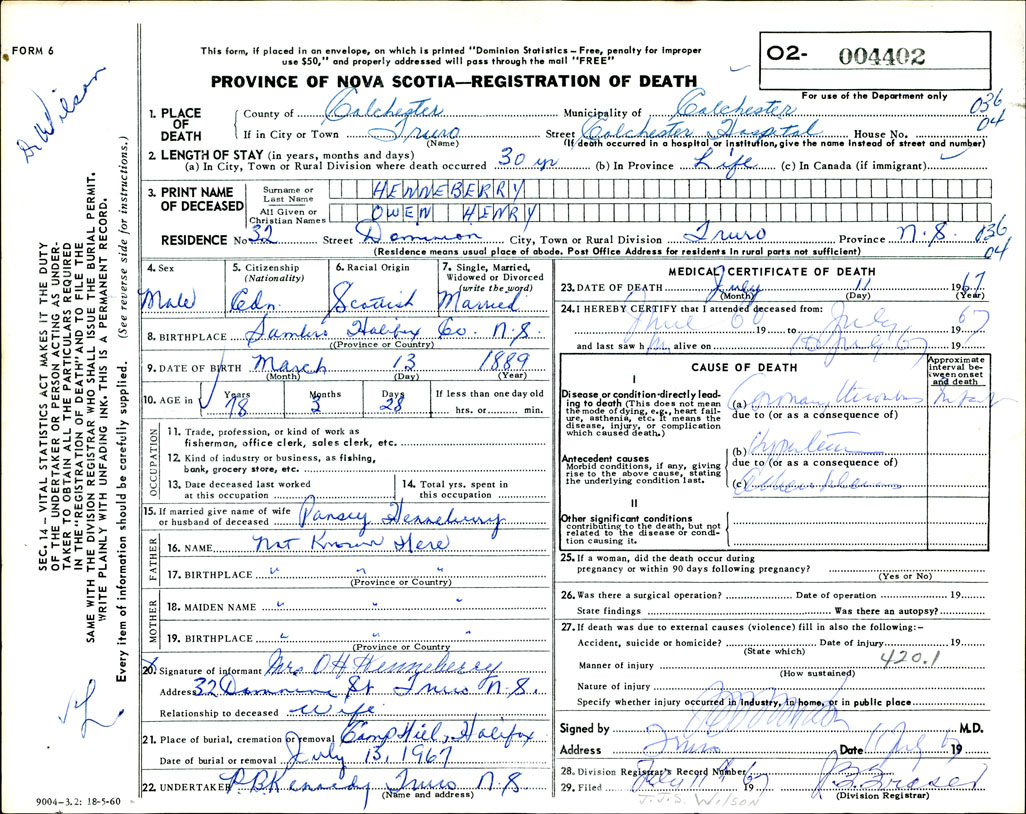 FORM 6
This form, if placed in an envelope, on which is printed "Dominion Statistics – Free, penalty for improper
use $50," and properly addressed will pass through the mail "FREE"
PROVINCE OF NOVA SCOTIA—REGISTRATION OF DEATH
O2- 004402
For use of the Department only
Dr Wilson
036
04
1. PLACE OF DEATH
County of Colchester Municipality of Colchester
If in City or Town Truro Street Colchester Hospital House No.
(Name) (If death occurred in a hospital or institution, give the name instead of street and number)
2. LENGTH OF STAY (in years, months and days)
(a) In City, Town or Rural Division where death occurred 30 yr (b) In Province Life (c) In Canada (if immigrant)
3. PRINT NAME OF DECEASED
Surname or Last Name HENNEBERRY
All Given or Christian Names OWEN HENRY
RESIDENCE No 32 Street Dominion City, Town or Rural Division Truro Province N.S.
036
04
(Residence means usual place of abode. Post Office Address for residents in rural parts not sufficient)
4. Sex
Male
5. Citizenship
(Nationality)
Cdn.
6. Racial Origin
Scottish
7. Single, Married,
Widowed or Divorced
(write the word)
Married
8. BIRTHPLACE Sambro Halifax Co. N.S.
(Province or Country)
9. DATE OF BIRTH March 13 1889
(Month) (Day) (Year)
10. AGE in
Years Months Days If less than one day old
78 3 28 hrs. or min.
OCCUPATION
11. Trade, profession, or kind of work as
fisherman, office clerk, sales clerk, etc.
12. Kind of industry or business, as fishing,
bank, grocery store, etc.
13. Date deceased last worked
at this occupation
14. Total yrs. spent in
this occupation
15. If married give name of wife
or husband of deceased Pansey Henneberry
FATHER
16. NAME Not Known Here
17. BIRTHPLACE " " "
(Province or Country)
MOTHER
18. MAIDEN NAME " " "
19. BIRTHPLACE " " "
(Province or Country
20. Signature of informant Mrs. O H Henneberry
Address 32 Dominion St Truro N.S.
Relationship to deceased Wife
21. Place of burial, cremation or removal Camp Hill, Halifax
Date of burial or removal July 13, 1967
22. UNDERTAKER P.B. Kennedy Truro N.S.
(Name and address)
9004-3.2: 18-5-60
MEDICAL CERTIFICATE OF DEATH
23. DATE OF DEATH July 11 1967
(Month) (Day) (Year)
24. I HEREBY CERTIFY that I attended deceased from:
19 to July 19 67
and last saw h im alive on July 67 19
CAUSE OF DEATH
Approximate
interval be-
tween onset
and death
I
Disease or condition directly lead-
ing to death (This does not mean
the mode of dying, e.g., heart fail-
ure, asthenia, etc. It means the
disease, injury, or complication
which caused death.)
(a) Coronary thrombosis
due to (or as a consequence of)
Antecedent causes
Morbid conditions, if any, giving
rise to the above cause, stating
the underlying condition last.
(b)
due to (or as a consequence of)
(c)
II
Other significant conditions
contributing to the death, but not
related to the disease or condi-
tion causing it.
25. If a woman, did the death occur during
pregnancy or within 90 days following pregnancy?
(Yes or No)
26. Was there a surgical operation? Date of operation 19
State findings Was there an autopsy?
27. If death was due to external causes (violence) fill in also the following:–
Accident, suicide or homicide? Date of injury 19
(State which)
420.1
Manner of injury
(How sustained)
Nature of injury
Specify whether injury occurred in industry, in home, or in public place
Signed by M.D.
Address Truro Date 11 July 67 19
28. Division Registrar's Record Number
29. Filed July 11 67 19
(Division Registrar)
J.J.S. WILSON
SEC. 14 – VITAL STATISTICS ACT MAKES IT THE DUTY
OF THE UNDERTAKER OR PERSON ACTING AS UNDER-
TAKER TO OBTAIN ALL THE PARTICULARS REQUIRED
IN THE "REGISTRATION OF DEATH" AND TO FILE THE
SAME WITH THE DIVISION REGISTRAR WHO SHALL ISSUE THE BURIAL PERMIT.
WRITE PLAINLY WITH UNFADING INK. THIS IS A PERMANENT RECORD.
Every item of information should be carefully supplied. (See reverse side for instructions.)